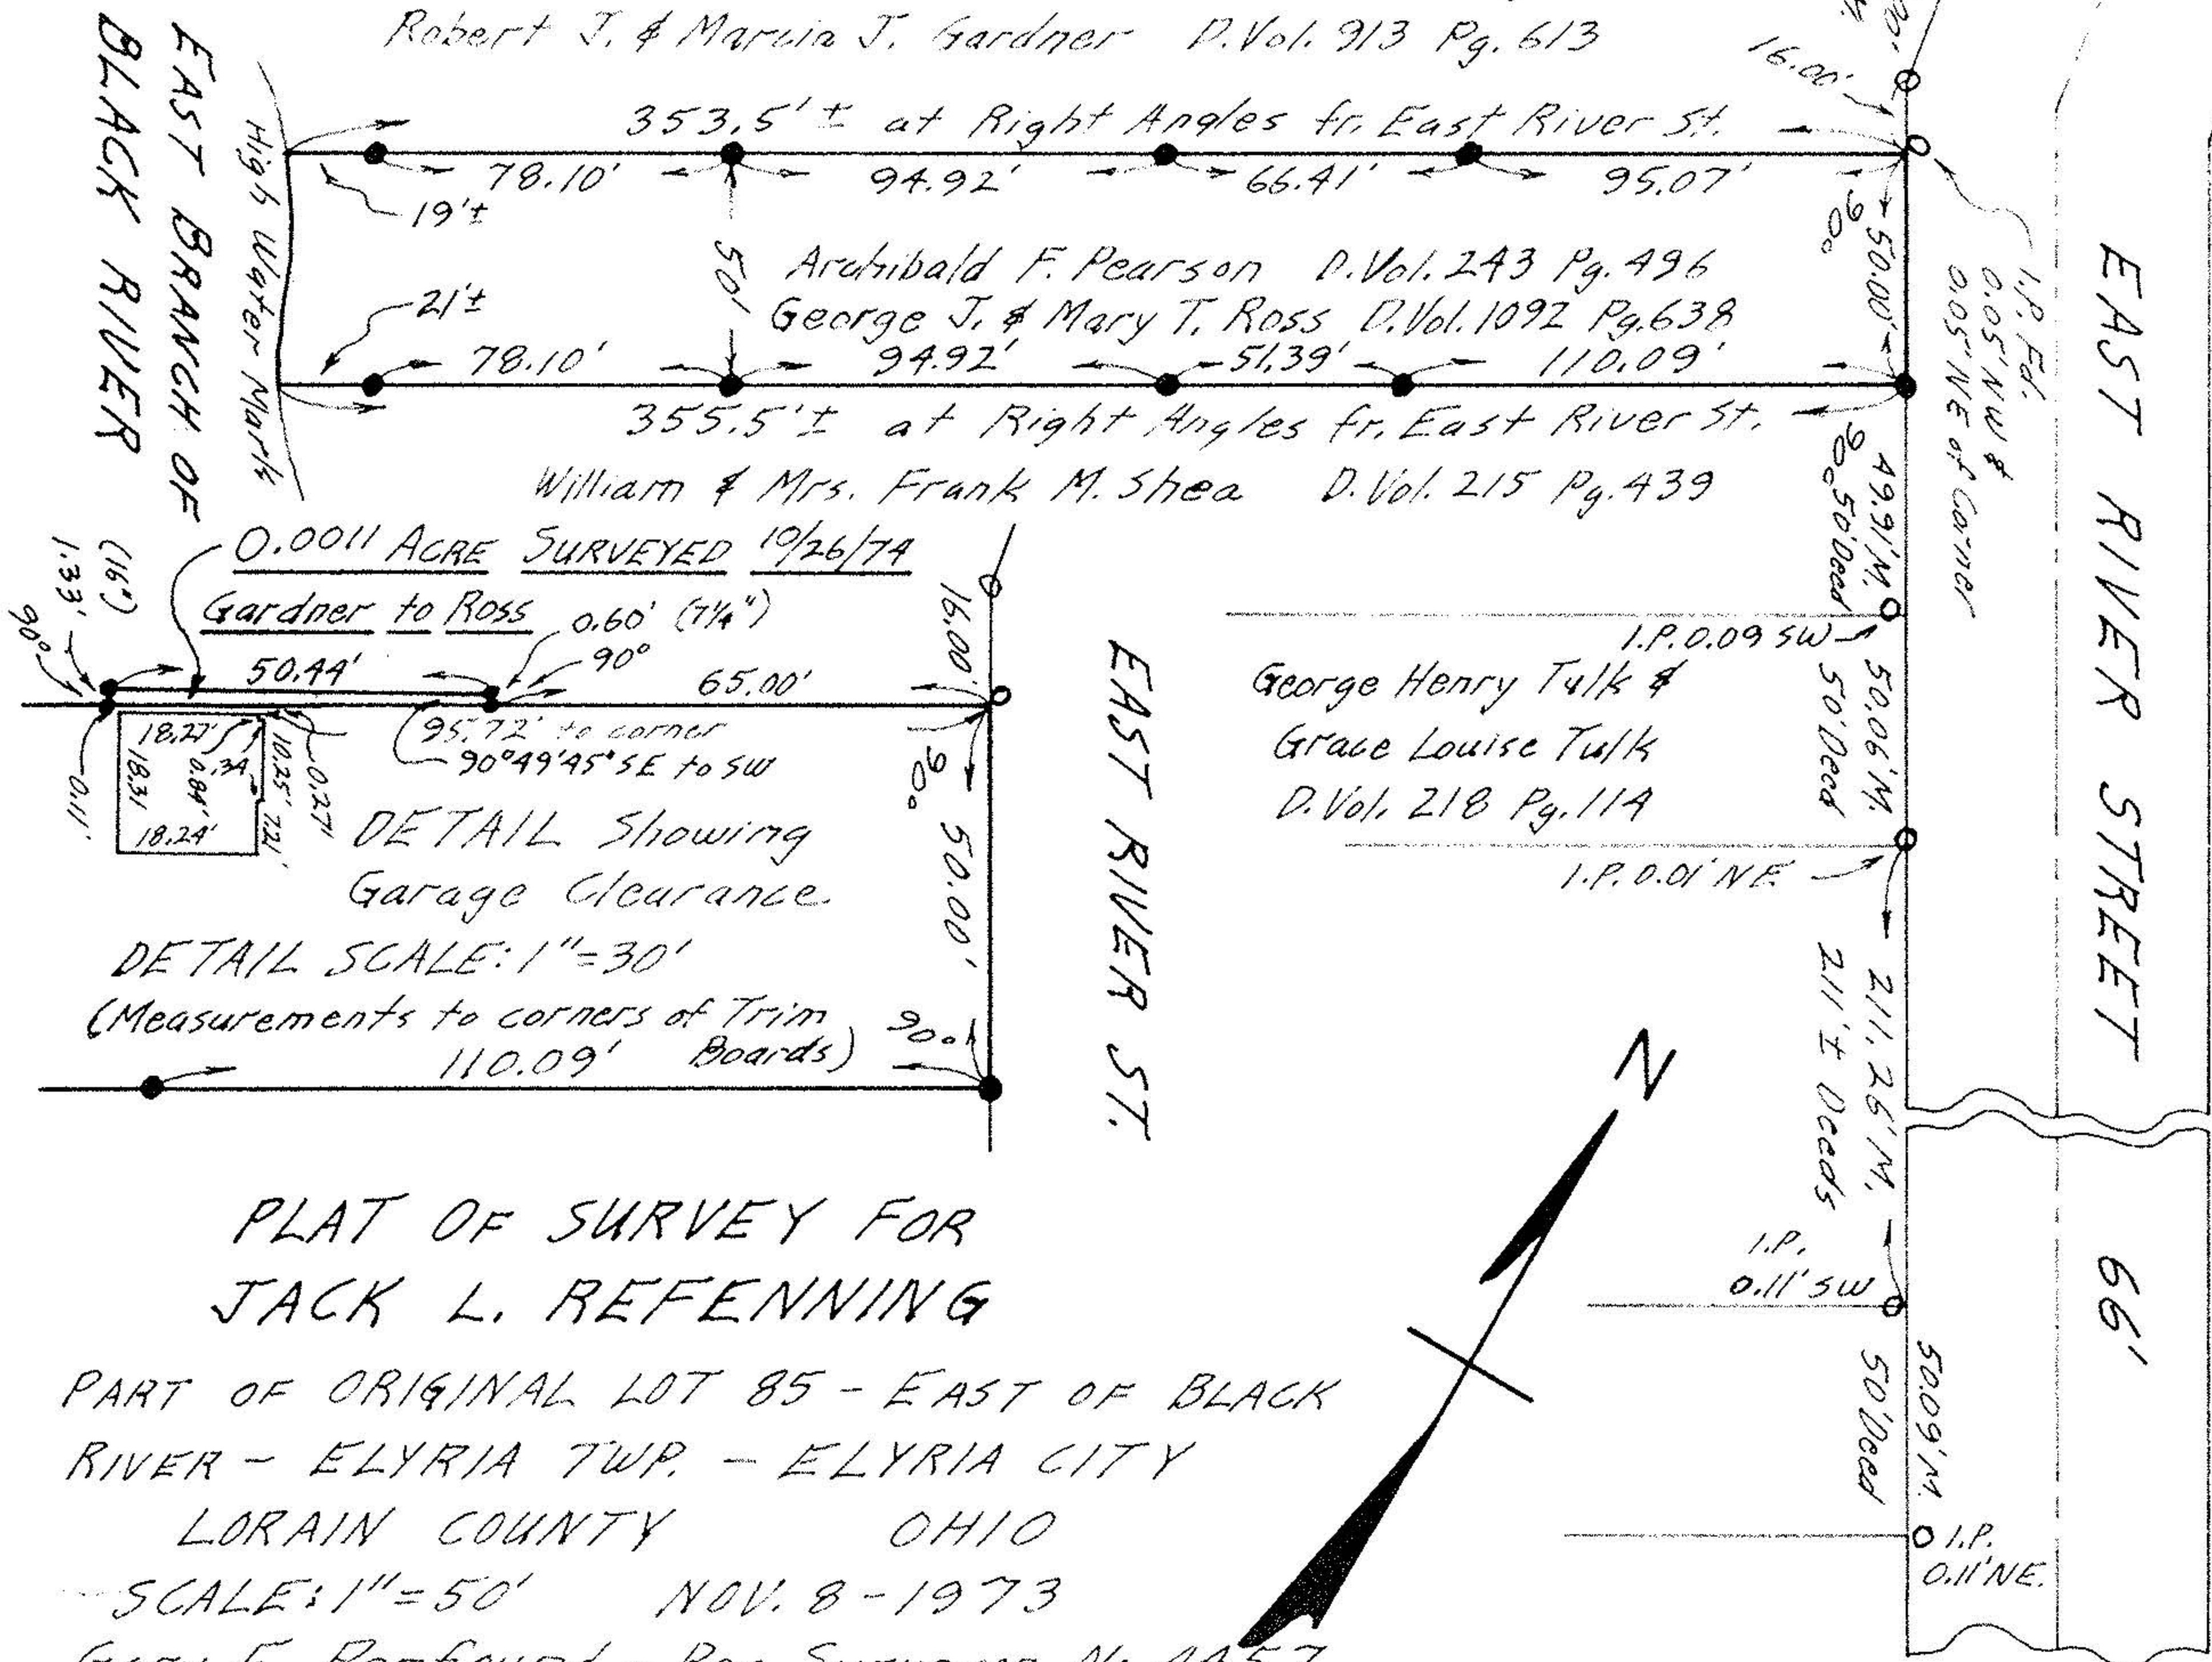 Robert J. & Marcia J. Gardner D.Vol. 913 Pg. 613
16.00'
353.5' ± at Right Angles fr. East River St.
78.10' 94.92' 66.41' 95.07'
19'±
90°
50.00'
50'
Archibald F. Pearson D.Vol. 243 Pg. 496
George J. & Mary T. Ross D.Vol. 1092 Pg. 638
21'±
78.10' 94.92' 51.39' 110.09'
355.5' ± at Right Angles fr. East River St.
William & Mrs. Frank M. Shea D.Vol. 215 Pg. 439
High Water Mark
EAST BRANCH OF
BLACK RIVER
I.P. Fd.
0.05' NW &
0.05' NE of Corner
EAST RIVER STREET 66'
90°
49.91' M.
50' Deed
I.P. 0.09 SW
George Henry Tulk &
Grace Louise Tulk
D.Vol. 218 Pg. 114
50.06' M.
50' Deed
I.P. 0.01' NE
211.26' M.
211' ± Deeds
I.P.
0.11' SW
50.09' M.
50' Deed
I.P.
0.11' NE.
0.0011 ACRE SURVEYED 10/26/74
Gardner to Ross
0.60' (7¼")
90°
(16")
1.33'
90°
50.44' 65.00'
16.00'
95.72' to corner
90°49'45" SE to SW
18.27'
.34
0.84'
18.31
18.24'
10.25'
7.21'
0.27'
0.11'
90°
50.00'
90°
DETAIL Showing
Garage Clearance.
DETAIL SCALE: 1"=30'
(Measurements to corners of Trim
Boards)
110.09'
EAST RIVER ST.
N
PLAT OF SURVEY FOR
JACK L. REFENNING
PART OF ORIGINAL LOT 85 - EAST OF BLACK
RIVER - ELYRIA TWP. - ELYRIA CITY
LORAIN COUNTY OHIO
SCALE: 1"=50' NOV. 8-1973